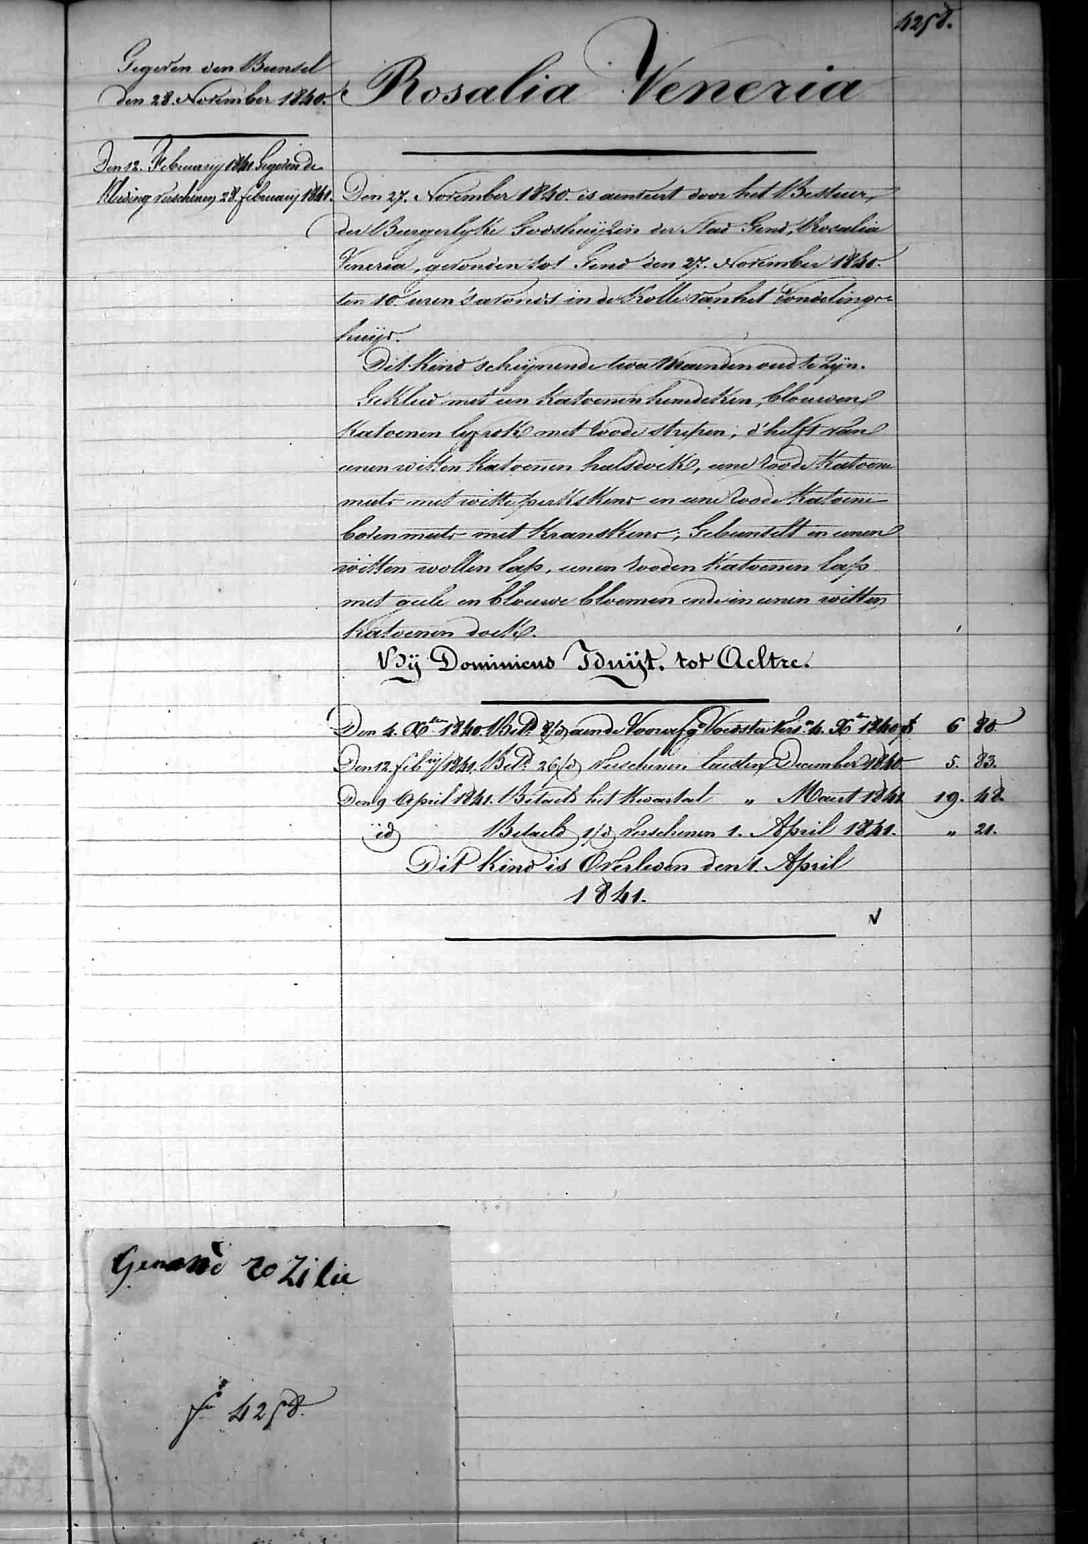 4258.
Gegeven den Bunsel
den 28. November 1840.
Rosalia Veneria
Den 12. February 1841 Gegeven de
Kleeding verschenen 28. february 1841.
Den 27. November 1840. is aenveert door het Bestuer,
der Burgerlyke Godshuijzen der Stad Gend, Rosalia
Veneria, gevonden tot Gend den 27. November 1840.
ten 10. uren 'savonds in de Rolle van het Vondelings-
huijs.
Dit Kind scheijnende twee Maenden oud te Zijn.
Gekleed met een Katoenen hemdeken, blouwen
Katoenen lijfrok met roode strepen, d'helft van
eenen witten Katoenen halsdoek, eene roode Katoene
muts met witte perkskens en eene roode Katoene
boven muts met Kranskens; Gebunselt in eenen
witten wollen lap, eenen rooden Katoenen lap
met geele en blouwe bloemen ende in eenen witten
Katoenen doek.
Bij Dominicus Iduijt. tot Aeltre.
Den 4. Xber 1840. Betd. 8/d aende Voorafge Voedster Vers. 4. Xr 1840 f 6 80
Den 12. febry 1841. Betd. 26/d Verschenen laesten December 1840. 5. 83.
Den 9 April 1841. Betaeld het Kwartael " Maert 1841. 19. 48.
id Betaeld 1/d Verschenen 1. April 1841. " 21.
Dit Kind is Overleden den 1. April
1841.
Genand roZilie
fo 4258.